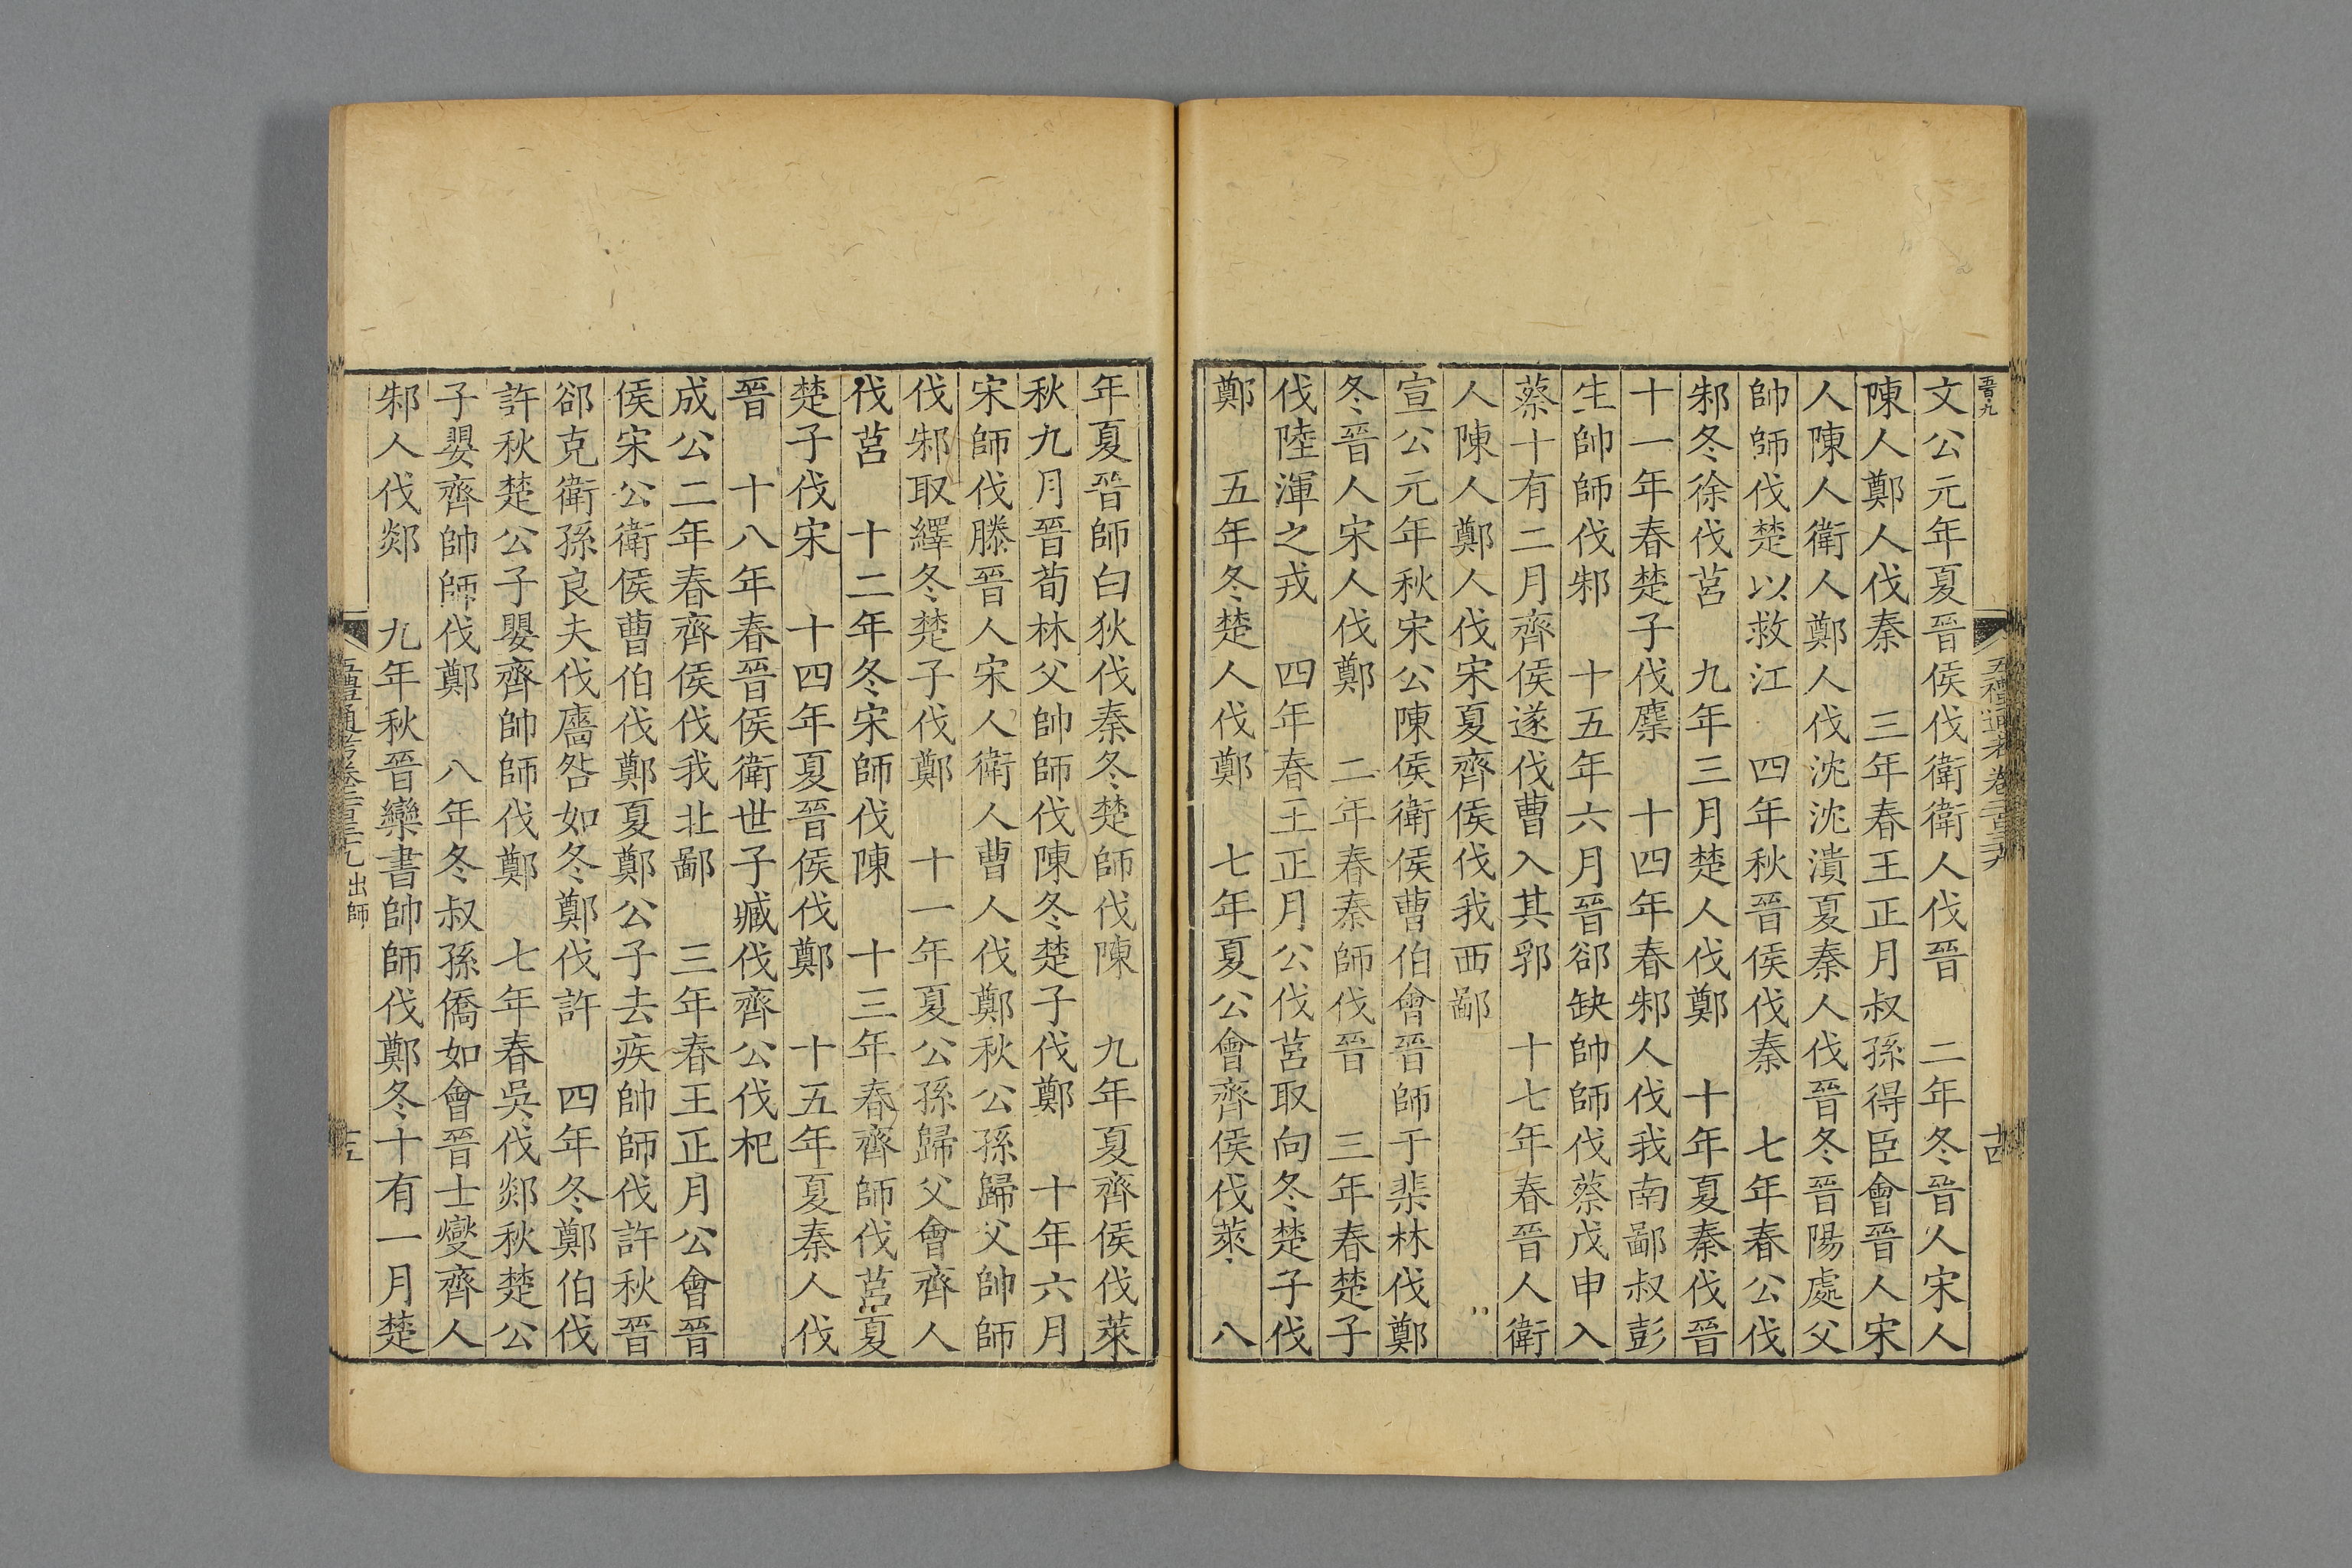 文公元年夏晉侯伐衛衛人伐晉　二年冬晉人宋人
陳人鄭人伐秦　三年春王正月叔孫得臣會晉人宋
人陳人衛人鄭人伐沈沈潰夏秦人伐晉冬晉陽處父
帥師伐楚以救江　四年秋晉侯伐秦　七年春公伐
邾冬徐伐莒　九年三月楚人伐鄭　十年夏秦伐晉
十一年春楚子伐麇　十四年春邾人伐我南鄙叔彭
生帥師伐邾　十五年六月晉郤缺帥師伐蔡戊申入
蔡十有二月齊侯遂伐曹入其郛　十七年春晉人衛
人陳人鄭人伐宋夏齊侯伐我西鄙
宣公元年秋宋公陳侯衛侯曹伯會晉師于棐林伐鄭
冬晉人宋人伐鄭　二年春秦師伐晉　三年春楚子
伐陸渾之戎　四年春王正月公伐莒取向冬楚子伐
鄭　五年冬楚人伐鄭　七年夏公會齊侯伐萊　八
年夏晉師白狄伐秦冬楚師伐陳　九年夏齊侯伐萊
秋九月晉荀林父帥師伐陳冬楚子伐鄭　十年六月
宋師伐滕晉人宋人衛人曹人伐鄭秋公孫歸父帥師
伐邾取繹冬楚子伐鄭　十一年夏公孫歸父會齊人
伐莒　十二年冬宋師伐陳　十三年春齊師伐莒夏
楚子伐宋　十四年夏晉侯伐鄭　十五年夏秦人伐
晉　十八年春晉侯衛世子臧伐齊公伐杞
成公二年春齊侯伐我北鄙　三年春王正月公會晉
侯宋公衛侯曹伯伐鄭夏鄭公子去疾帥師伐許秋晉
郤克衛孫良夫伐廧咎如冬鄭伐許　四年冬鄭伯伐
許秋楚公子嬰齊帥師伐鄭　七年春吳伐郯秋楚公
子嬰齊帥師伐鄭　八年冬叔孫僑如會晉士燮齊人
邾人伐郯　九年秋晉欒書帥師伐鄭冬十有一月楚
出師